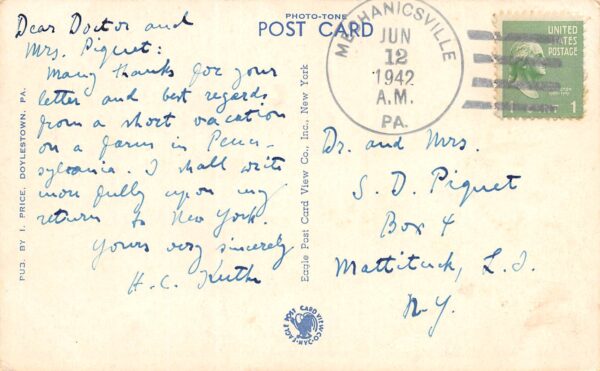 Dear Doctor and
Mrs. Piquet:
Many thanks for your
letter and best regards
from a short vacation
on a farm in Penn-
sylvania. I shall write
more fully upon my
return to New York.
Yours very sincerely
H. C.
PUB. BY I. PRICE, DOYLESTOWN, PA.
PHOTO-TONE
POST CARD
Eagle Post Card View Co., Inc., New York
EAGLE POST CARD VIEW CO. N.Y.C.
MECHANICSVILLE
JUN
12
1942
A.M.
PA.
UNITED
STATES
POSTAGE
1
Dr. and Mrs.
S. D. Piquet
Box 4
Mattituck, L. I.
N.Y.